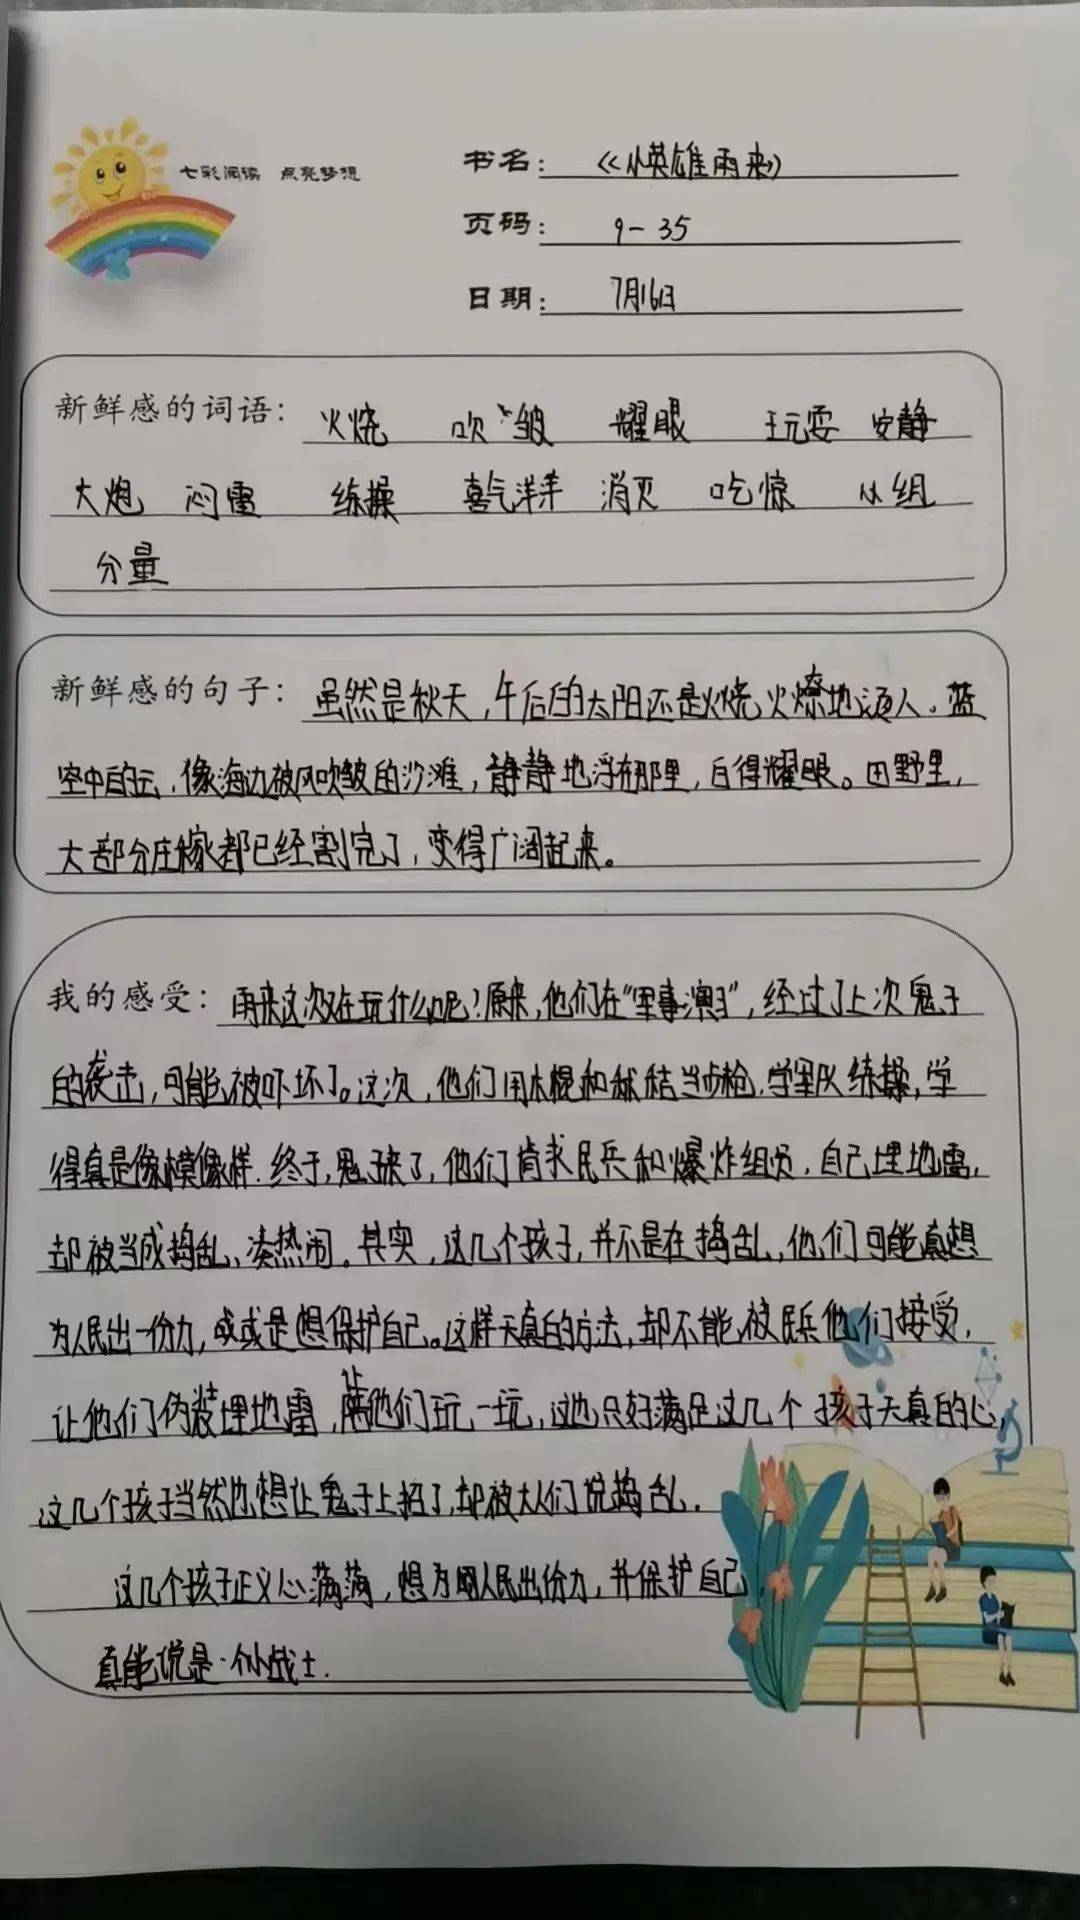 七彩阅读 点亮梦想
书名：《小英雄雨来》
页码：9-35
日期：7月16日
新鲜感的词语：火烧 吹皱 耀眼 玩耍 安静
大炮 闷雷 练操 喜气洋洋 消灭 吃惊 小组
分量
新鲜感的句子：虽然是秋天，午后的太阳还是火烧火燎地烫人。蓝
空中的云，像海边被风吹皱的沙滩，静静地浮在那里，白得耀眼。田野里，
大部分庄稼都已经割完了，变得广阔起来。
我的感受：雨来这次又在玩什么呢？原来，他们在“军事演习”，经过了上次鬼子
的袭击，可能被吓坏了。这次，他们用木棍和秫秸当步枪，学军队练操，学
得真是像模像样。终于，鬼子来了，他们肯求民兵和爆炸组员，自己埋地雷，
却被当成捣乱、凑热闹。其实，这几个孩子，并不是在捣乱，他们可能真想
为人民出一份力，或或是想保护自己。这样天真的方法，却不能被民兵他们接受，
让他们伪装埋地雷，让他们玩一玩，这也只好满足这几个孩子天真的心，
这几个孩子当然也想让鬼子上招了，却被大人们说捣乱。
这几个孩子正义心满满，想为国人民出份力，并保护自己，
真能说是一个小战士.